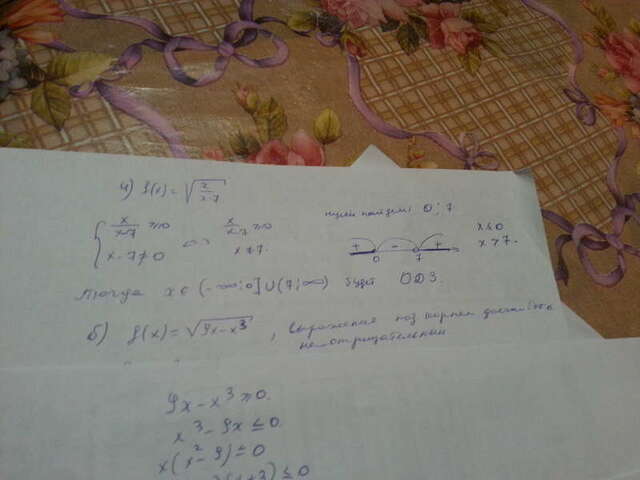 а) f(x) = √(x/(x-7))
{ x/(x-7) ≥ 0 <=> x/(x-7) ≥ 0
x-7 ≠ 0 x ≠ 7.
нулей найдем: 0; 7
+ - +
0 7
x ≤ 0
x > 7.
Тогда x ∈ (-∞; 0] ∪ (7; ∞) будет ОДЗ.
б) f(x) = √(9x-x³), выражения под корнем должно
неотрицательный
9x - x³ ≥ 0.
x³ - 9x ≤ 0.
x(x² - 9) ≤ 0
(x+3) ≤ 0